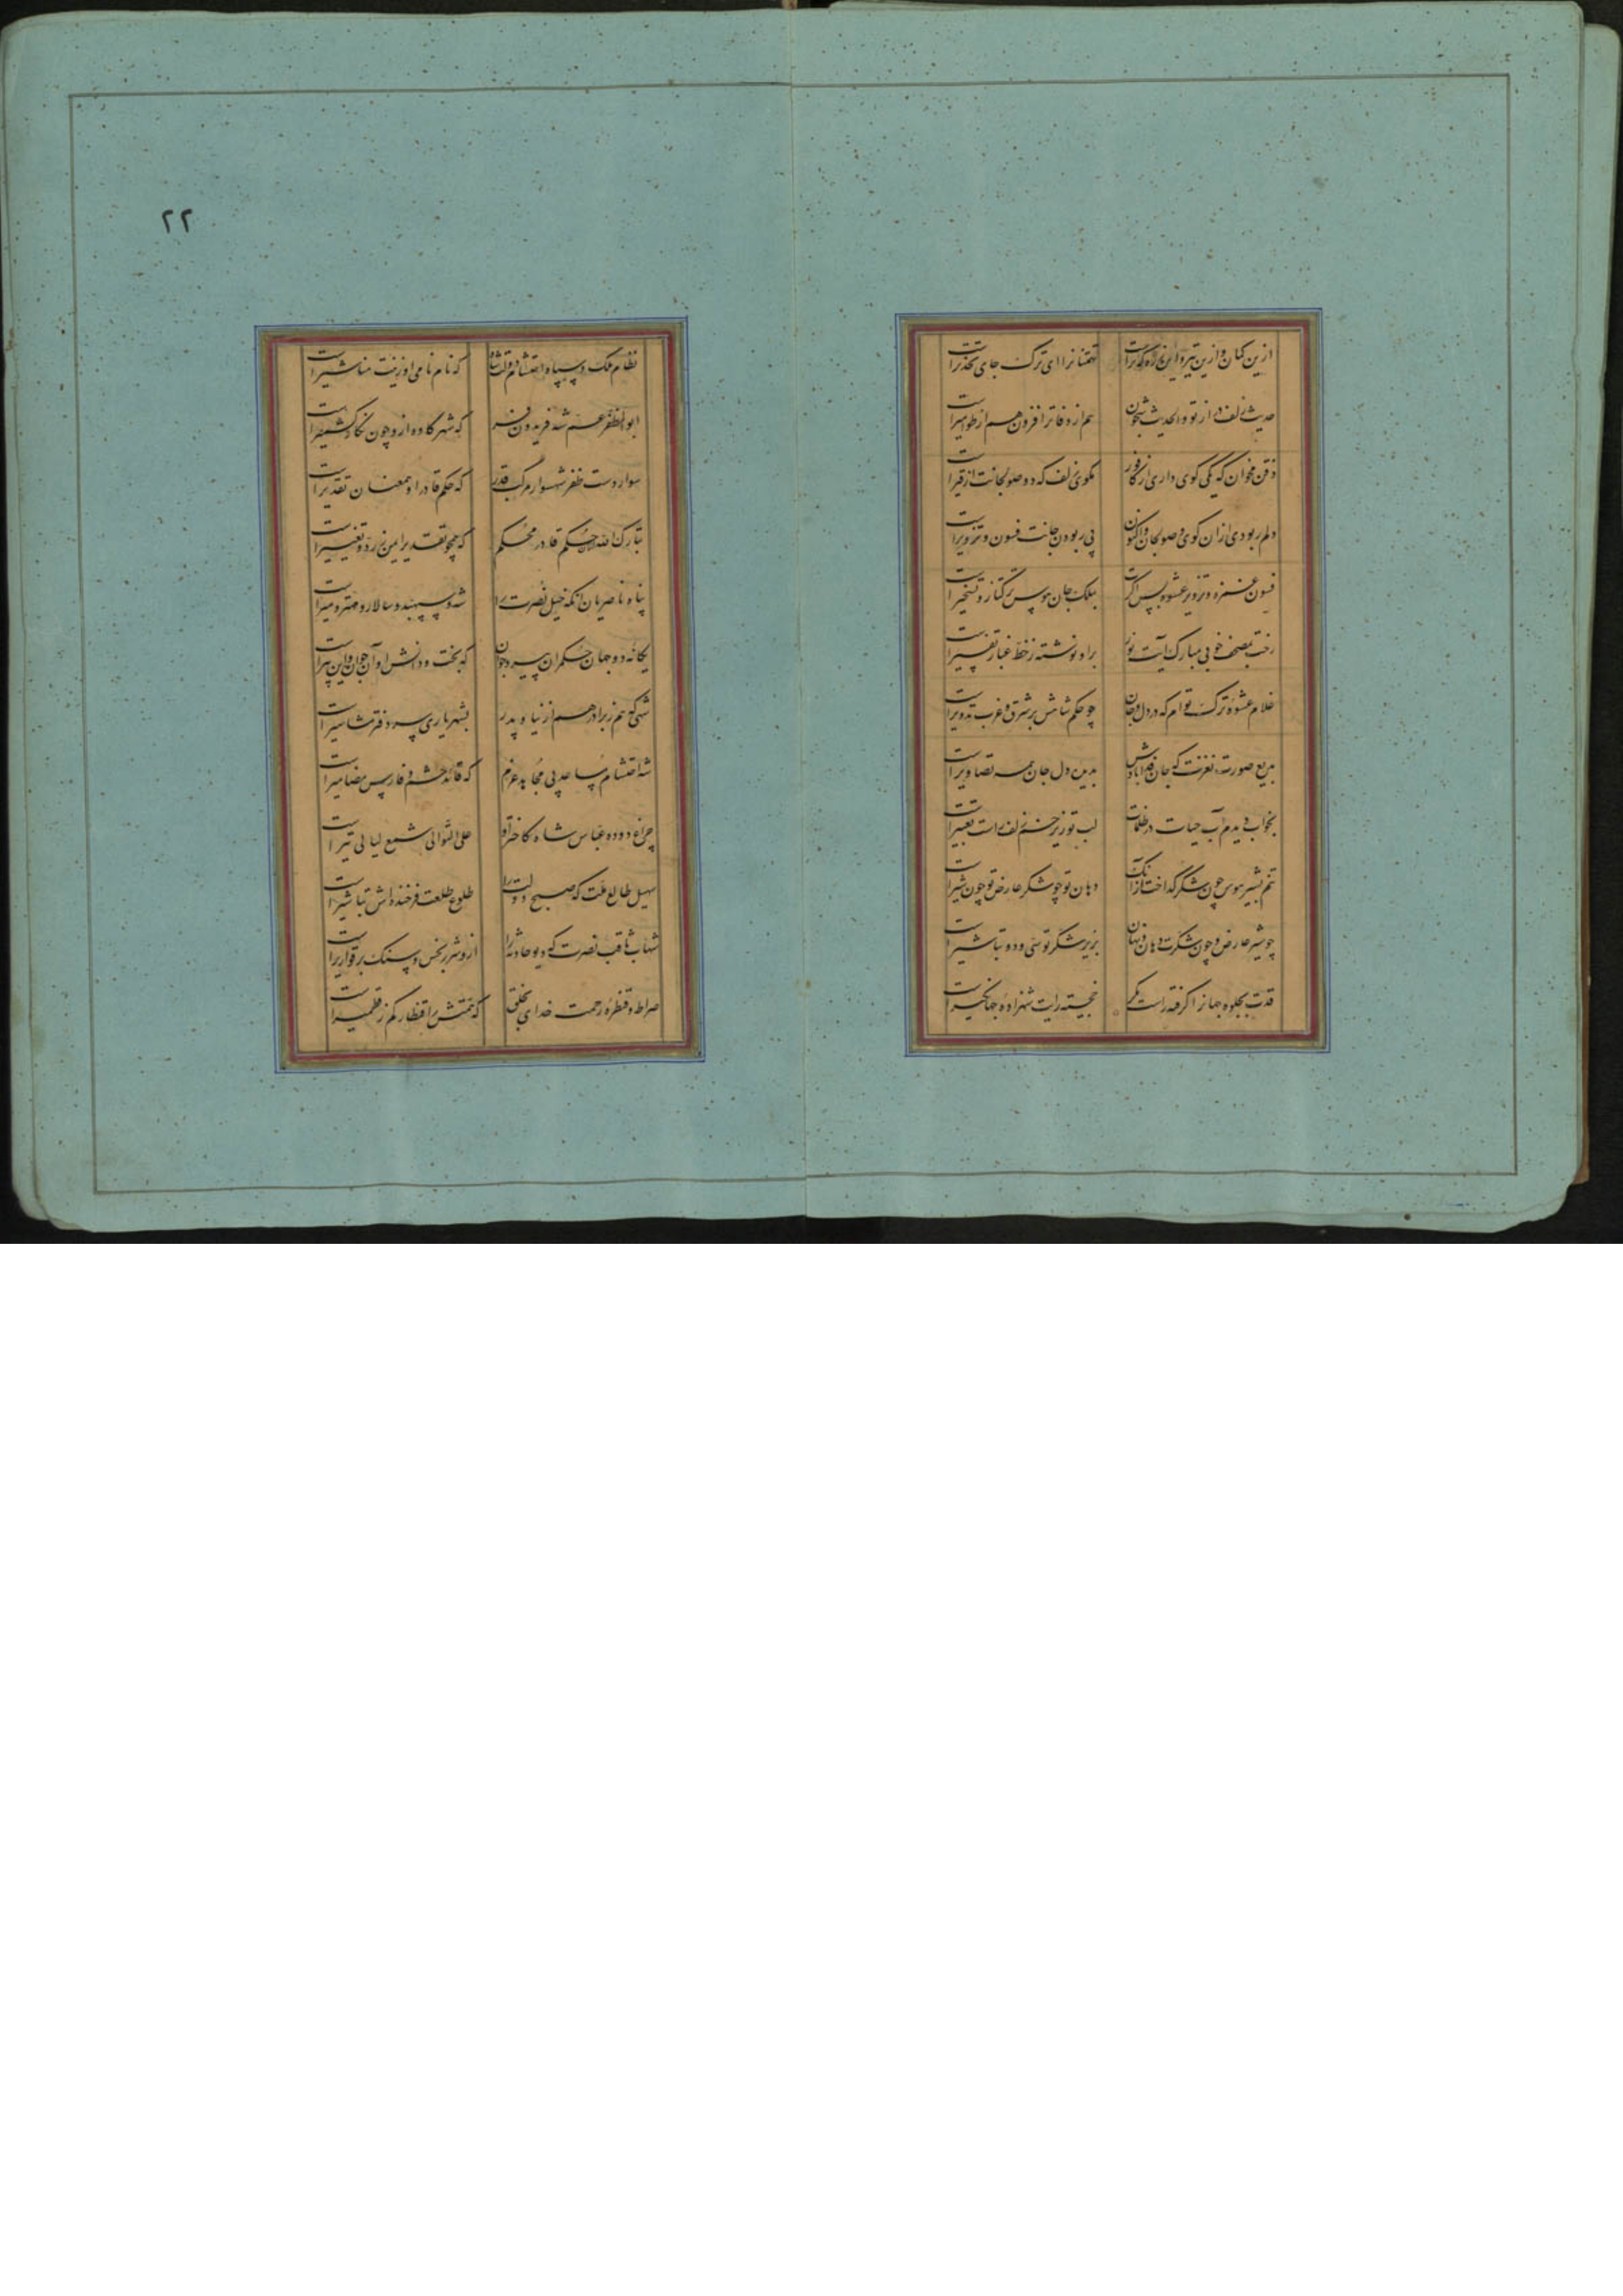 ازین کمان و ازین تیر و این زره کمر است تهمتنا نرا ای ترک جای تحذیر است
حدیث زلف دراز تو والحدیث شجون هم از دفاتر افزون هم از طوامیر است
ذقن مخوان که یکی گوی داری از کافور مگوی زلف که دو صولجانت از قیر است
دلم ربودی ازان گوی و صولجان واکنون پی ربودن جانت فسون و تزویر است
فسون غمزه و تزویر عشوه بس اگرت بملک جان هوس ترکتاز و تسخیر است
رخت بمصحف خوبی مبارک آیت نور براو نوشته ز خط غبار تفسیر است
غلام عشوه ترک توام که در دل و جان چو حکم شاهش بر شرق و غرب تدویر است
بدیع صورت نغزت که جان فدا بادش بدین دل جان همه تصاویر است
بخواب دیدم آب حیات در ظلمات لب تو زیر خم زلف است تعبیر است
تنم بشیر هوس چون شکر گداخت ازآنک دهان تو چو شکر عارض تو چون شیر است
چو شیر عارض و چون شکرت دهان و نهان بزیر شکر تو سی و دو تباشیر است
قدت بجلوه جهانرا گرفته است مگر خجسته رایت شهزاده جهانگیر است
۲۲
نظام ملک و سپاه احتشام دولت شاه که نام نامی او زینت مناشیر است
ابوالمظفر عم شه فریدون فر که شهر گاوه ازو چون نگار کشمیر است
سوار دست ظفر شهسوار مرکب قدر که حکم قادر او همعنان تقدیر است
تبارک الله حکم قادر محکم که همچو تقدیر ایمن ز رد و تغییر است
پناه ناصریان آنکه خیل نصرت را شه و سپهبد و سالار و مهتر و میر است
یگانه دو جهان حکمران پیر و جوان که بخت و دانش او آن جوان و این پیر است
شهی که هم ز برادر هم از نیا و پدر بشهریاری سر دفتر مشاهیر است
شه احتشام مساعد پی مجاهد عزم که قائد حشم و فارس مضامیر است
چراغ دوده عباس شاه کاختر او علی التوالی شمع لیالی تیر است
سهیل طالع ملت که صبح دولت را طلوع طلعت فرخنده اش تباشیر است
شهاب ثاقب نصرت که دیو حادثه را ازو شرر بخس و سنگ بر قواریر است
صراط و قنطره رحمت خدای بخلق که همتش را قنطار کم ز قطمیر است